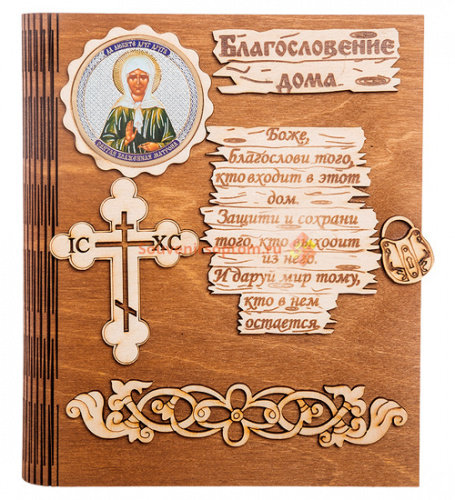 Благословение
дома
ДА ЛЮБИТЕ ДРУГ ДРУГА
Боже,
благослови того,
кто входит в этот
дом.
Защити и сохрани
того, кто выходит
из него.
И даруй мир тому,
кто в нем
остается.
IC XC